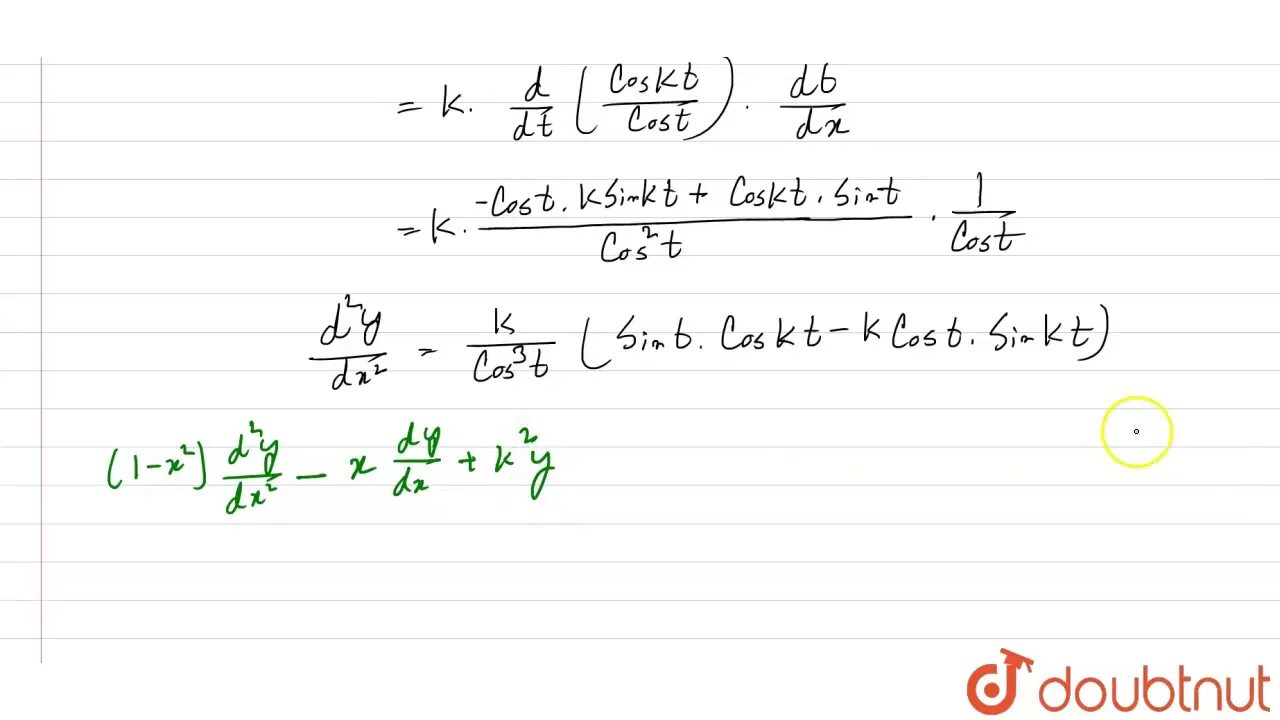 = K. d/dt (CosKt/Cost) . dt/dx
= K. (-Cost. KSinkt + Coskt. Sint)/Cos²t . 1/Cost
d²y/dx² = K/Cos³t (Sint. Coskt - K Cost. Sinkt)
(1-x²) d²y/dx² - x dy/dx + K²y
doubtnut